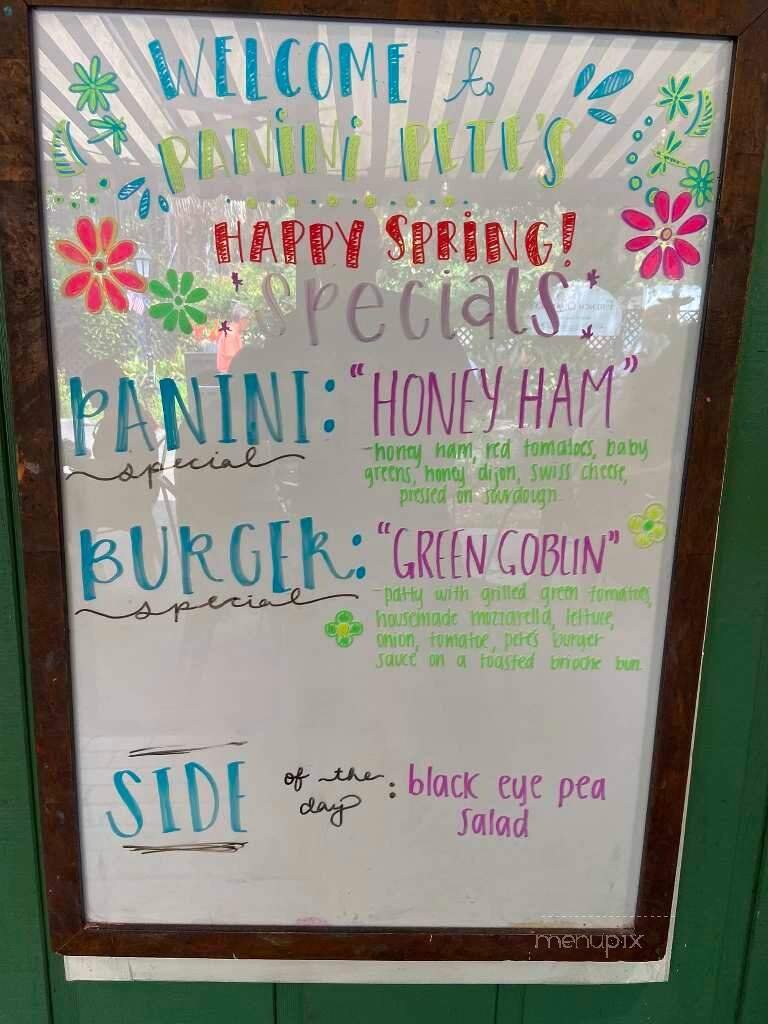 WELCOME to
PANINI PETE'S
HAPPY SPRING!
*specials*
PANINI: "HONEY HAM"
special
-honey ham, red tomatoes, baby
greens, honey dijon, swiss cheese,
pressed on sourdough
BURGER: "GREEN GOBLIN"
special
-patty with grilled green tomatoes,
housemade mozzarella, lettuce,
onion, tomatoe, pete's burger
sauce on a toasted brioche bun.
SIDE of the day: black eye pea
salad
menupix